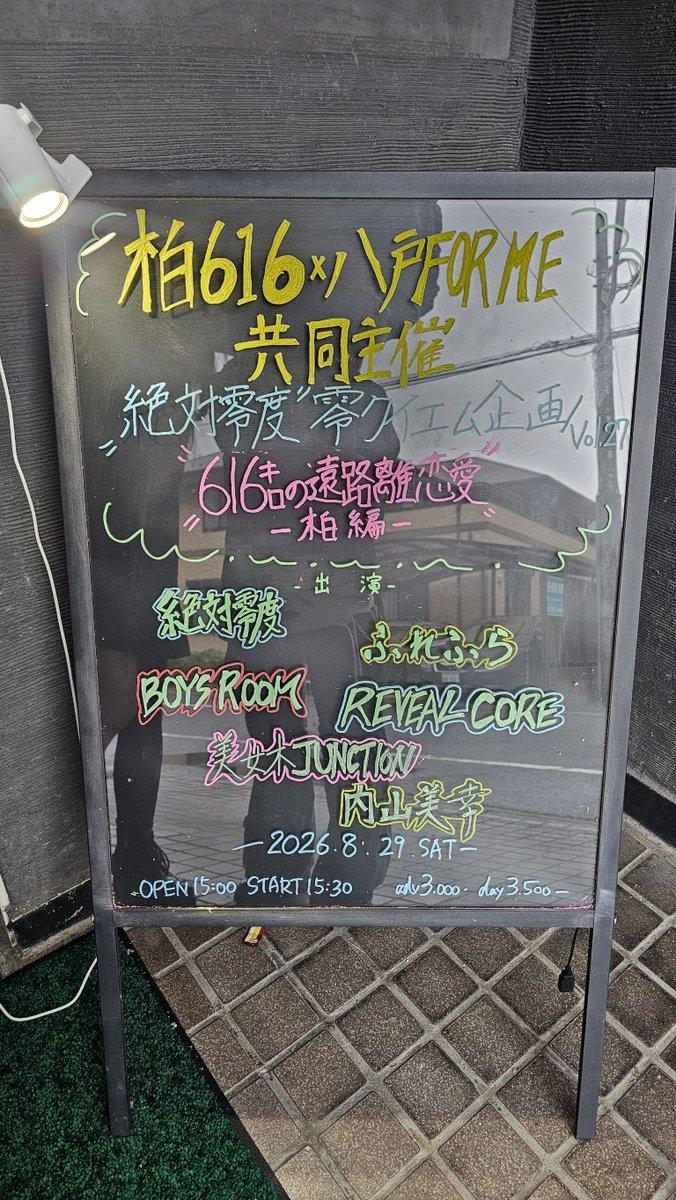 柏616×八戸FOR ME
共同主催
"絶対零度"零ケイエム企画Vol.27
"616キロの遠路離恋愛"
-柏編-
-出演-
絶対零度
ふれふら
BOYS ROOM
REVEAL CORE
美女木JUNCTION
内山美幸
-2026.8.29.SAT-
OPEN 15:00 START 15:30 adv3.000- day3.500-